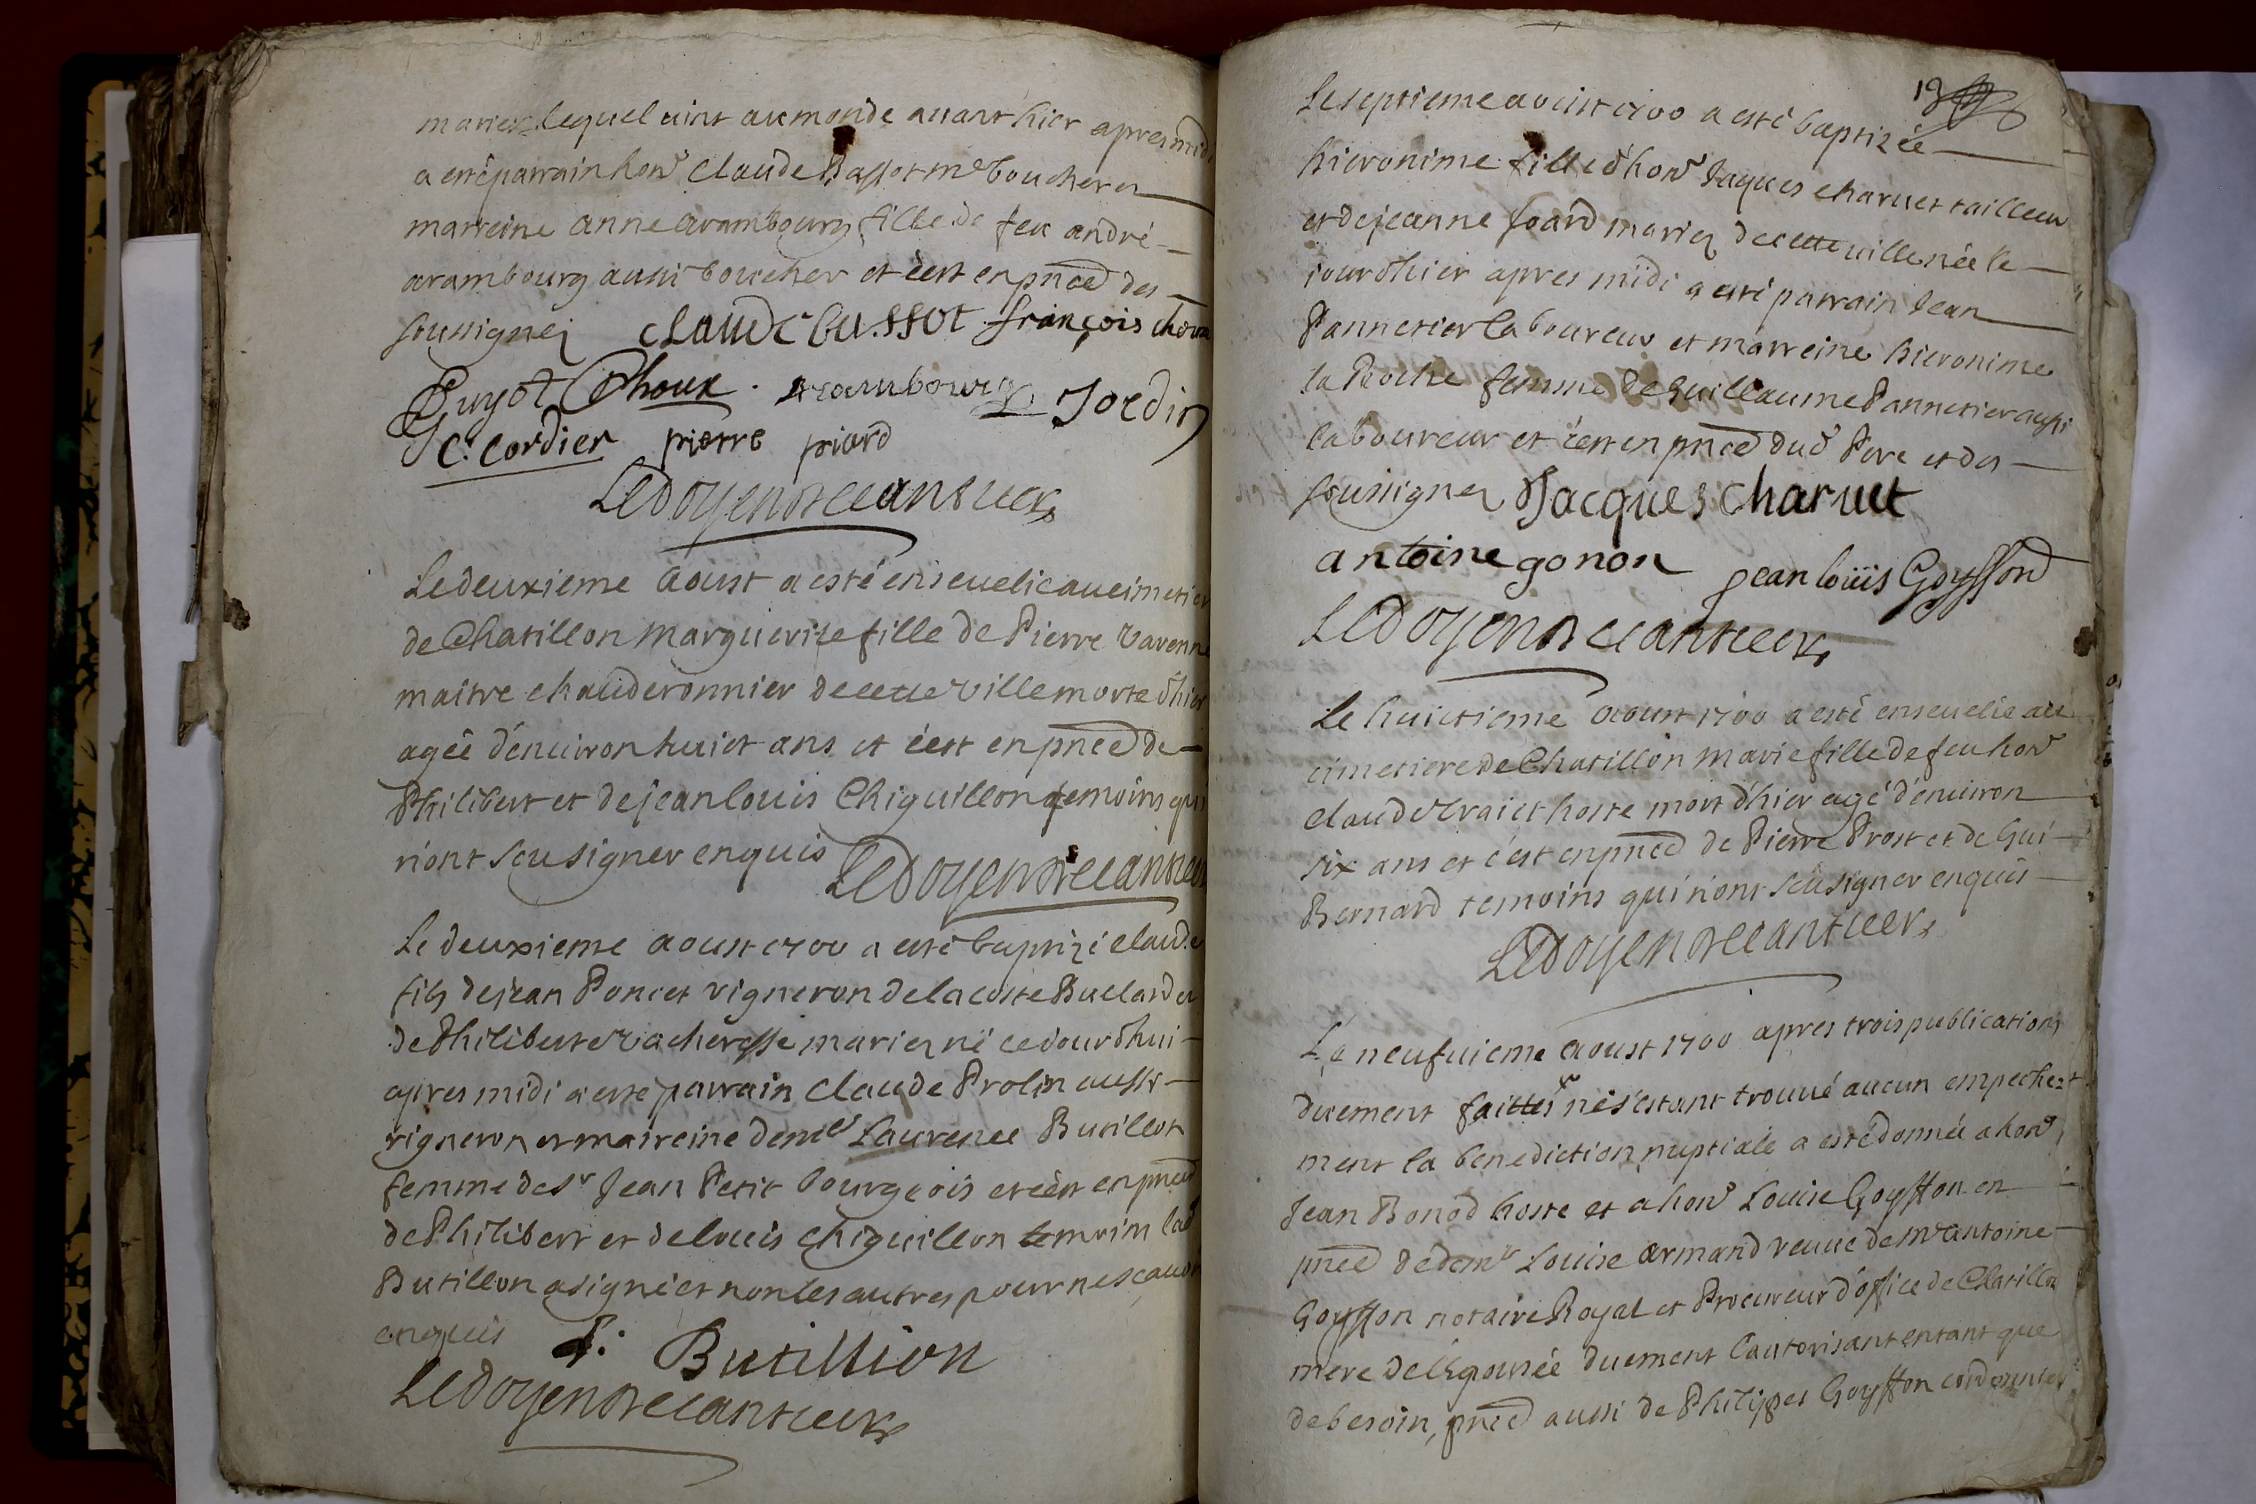 mariez lequel vint au monde avant hier apres midi
a esté parrain honᵉ Claude Bassot mᵉ boucher et
marreine anne arambourg fille de feu andré
arambourg aussi boucher et c'est en pnce des
soussignez claude bussot françois choux
Guyot Choux . arambourg Jordin
C. Cordier pierre piard
Ledoyen
Le deuxieme Aoust a esté ensevelie au cimetier
de Chatillon Marguerite fille de Pierre Varenne
maitre chauderonnier de cette ville morte d'hier
agée d'environ huict ans et c'est en pnce de
Philibert et de jean louis Chiquillon temoins qui
n'ont seu signer enquis Ledoyen
Le deuxieme aoust 1700 a esté baptizé claude
fils de jean Poncet vigneron de la coste Buclard et
de Philiberte Vacheresse mariez né ce jourd'hui
apres midi a esté parrain Claude Prolin aussi
vigneron et marreine demˡᵉ Laurence Butillon
femme de Sʳ Jean Petit bourgeois et c'est en pnce
de Philibert et de louis chiquillon temoins lad
Butillon a signé et non les autres pour ne scavoir
enquis L: Butillion
Ledoyen
19
Le septieme aoust 1700 a esté baptizée
hieronime fille d'honᵉ Jaques charvet tailleur
et de jeanne foard mariez de cette ville née le
jour d'hier apres midi a esté parrain Jean
Pannetier laboureur et marreine hieronime
la Roche femme de Guillaume Pannetier aussi
laboureur et c'est en pnce dud Pere et des
soussignez Jacques Charvet
antoine gonon jean loüis Goyffond
Ledoyen
Le huictieme aoust 1700 a esté ensevelie au
cimetiere de Chatillon Marie fille de feu honᵉ
claude Vraict hoste mort d'hier agé d'environ
six ans et c'est en pnce de Pierre Prost et de Gui
Bernard temoins qui n'ont seu signer enquis
Ledoyen
Le neufvieme aoust 1700 apres trois publications
duement faittes ne s'estant trouvé aucun empeche=
ment la benediction nuptiale a esté donnée a honᵉ
Jean Bonod hoste et a honᵉ Louise Goyffon en
pnce de demˡᵉ Louise armand veuve de Mᵉ antoine
Goyffon notaire Royal et Procureur d'office de Chatillon
mere de l'Epousée duement l'autorisant entant que
de besoin, pnce aussi de Philippes Goyffon cordonnier